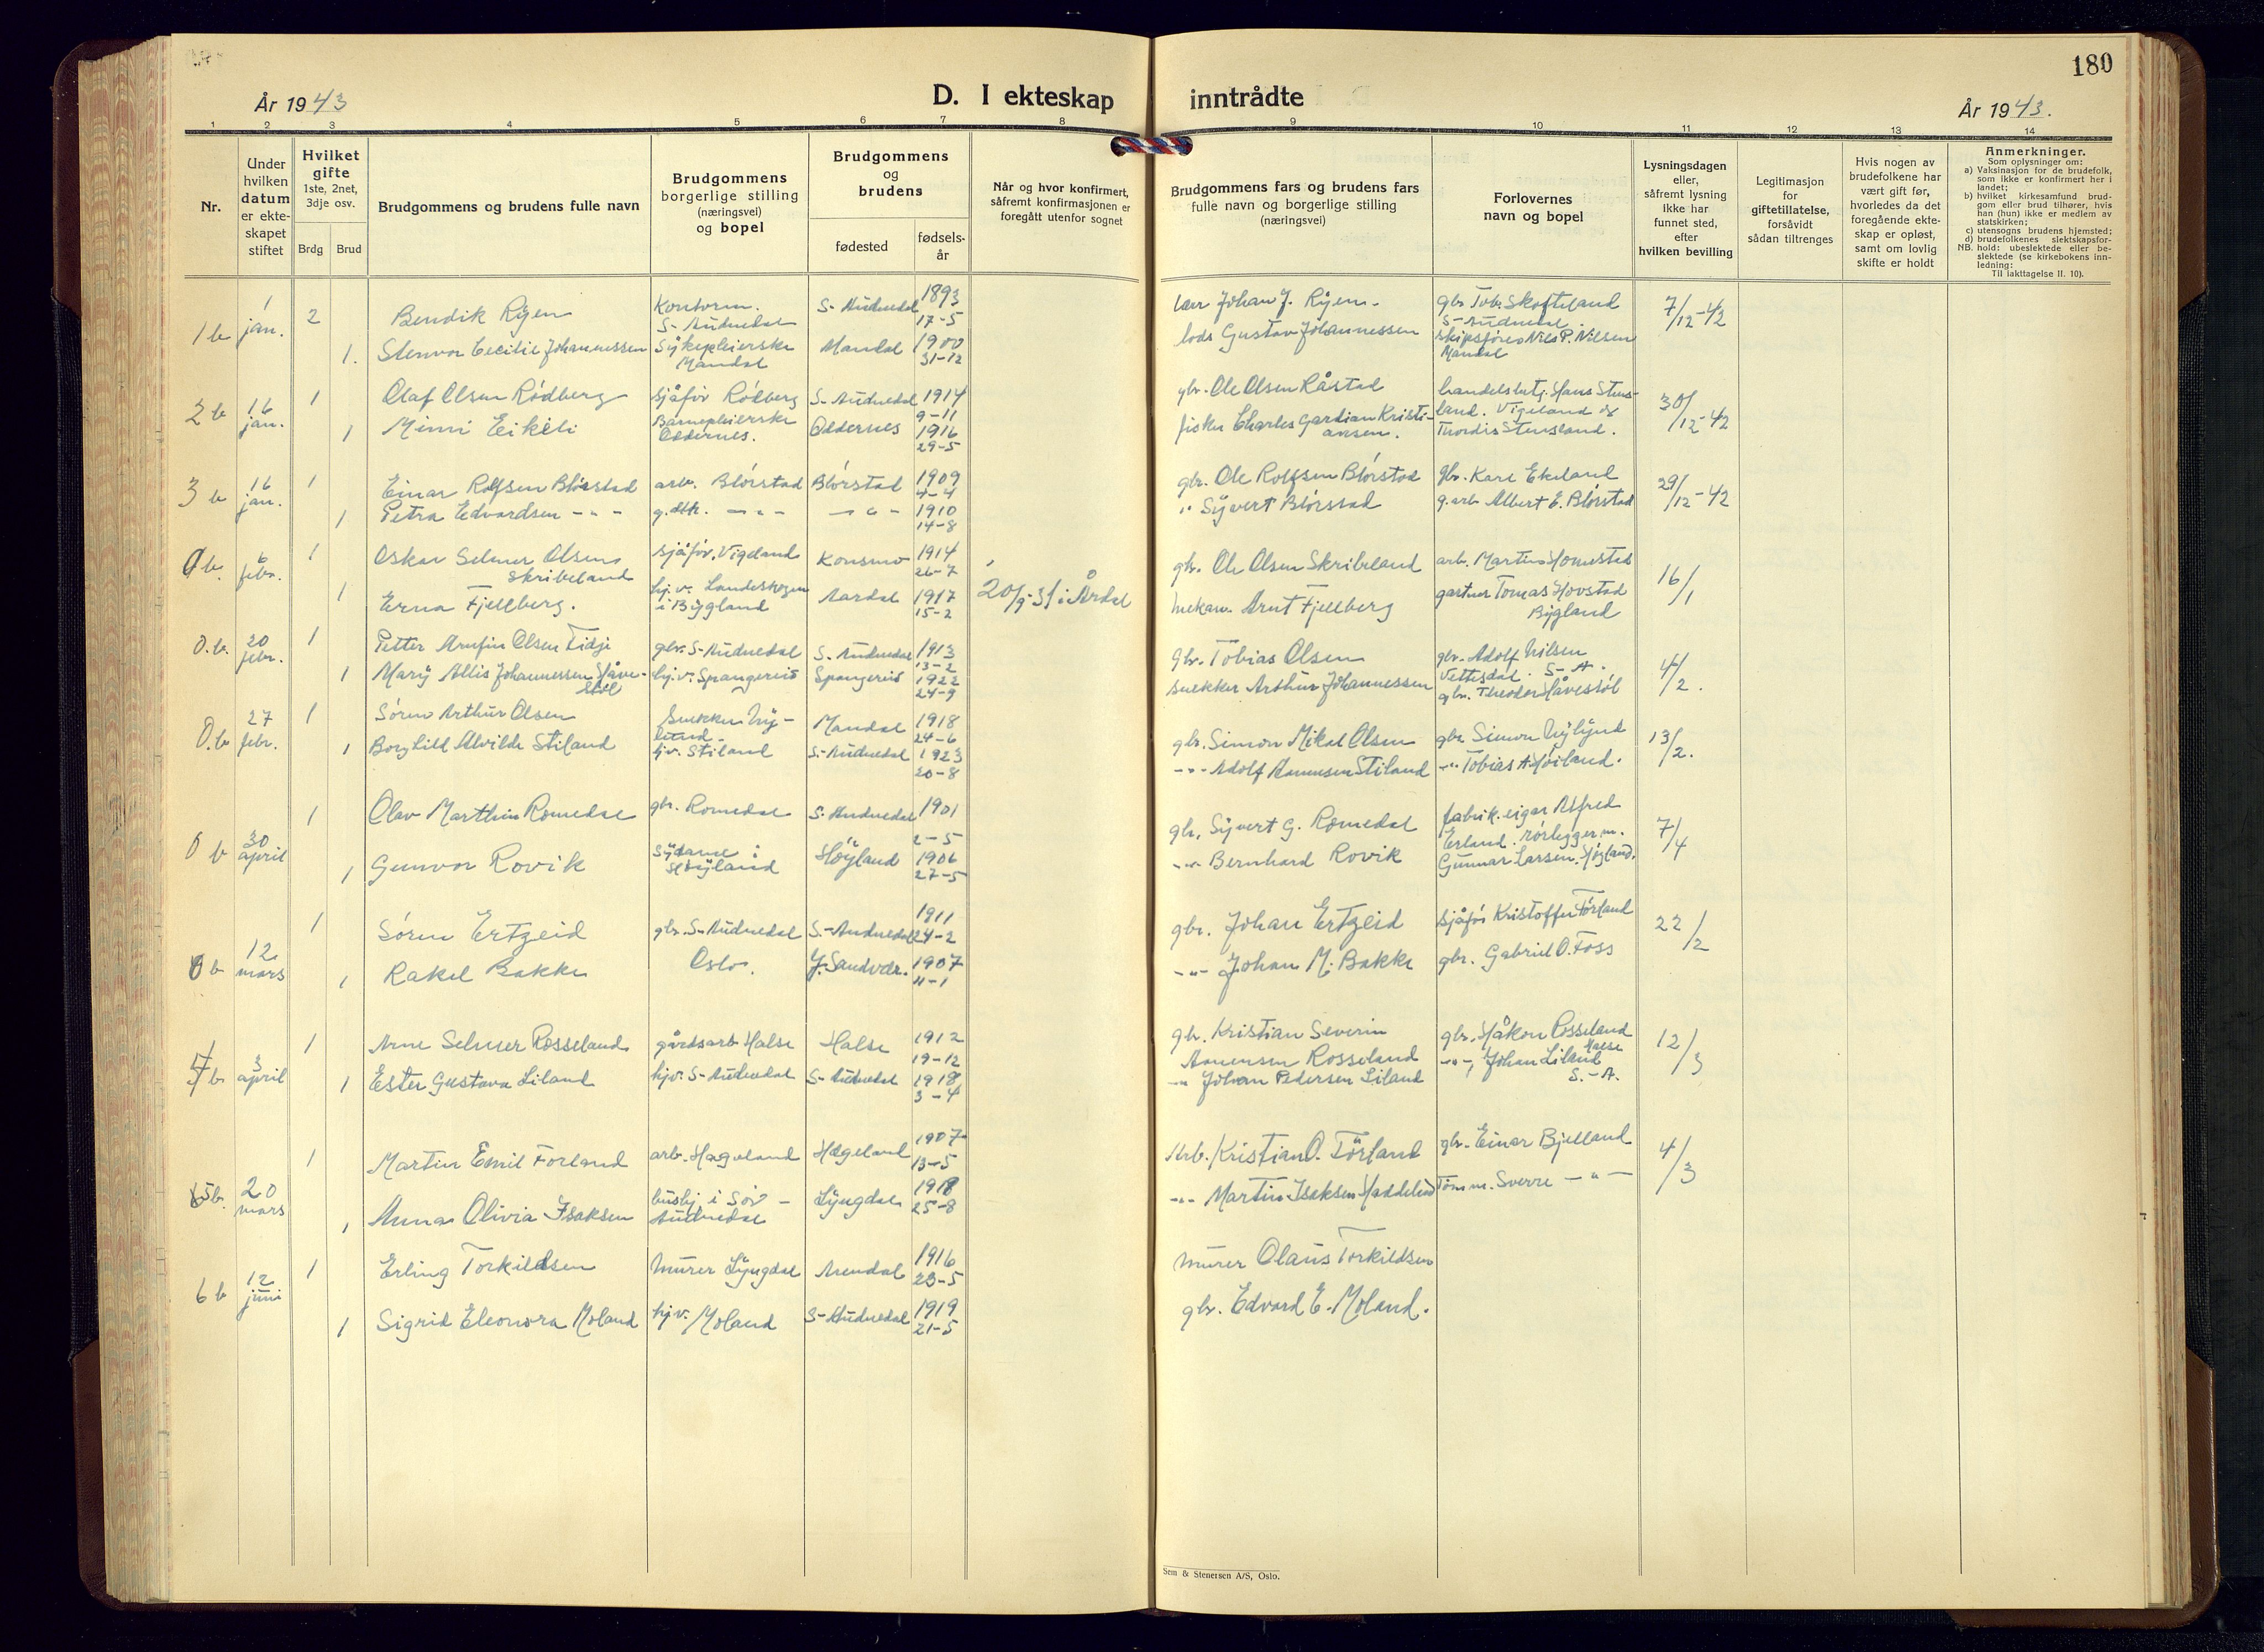 180
År 1943
D. I ekteskap inntrådte
År 1943.
1 2 3 4 5 6 7 8 9 10 11 12 13 14
Nr.
Under
hvilken
datum
er ekte-
skapet
stiftet
Hvilket
gifte
1ste, 2net,
3dje osv.
Brdg Brud
Brudgommens og brudens fulle navn
Brudgommens
borgerlige stilling
(næringsvei)
og bopel
Brudgommens
og
brudens
fødested
fødsels-
år
Når og hvor konfirmert,
såfremt konfirmasjonen er
foregått utenfor sognet
Brudgommens fars og brudens fars
fulle navn og borgerlige stilling
(næringsvei)
Forlovernes
navn og bopel
Lysningsdagen
eller,
såfremt lysning
ikke har
funnet sted,
efter
hvilken bevilling
Legitimasjon
for
giftetillatelse,
forsåvidt
sådan tiltrenges
Hvis nogen av
brudefolkene har
vært gift før,
hvorledes da det
foregående ekte-
skap er opløst,
samt om lovlig
skifte er holdt
Anmerkninger.
Som oplysninger om:
a) Vaksinasjon for de brudefolk,
som ikke er konfirmert her i
landet;
b) hvilket kirkesamfund brud-
gom eller brud tilhører, hvis
han (hun) ikke er medlem av
statskirken;
c) utensogns brudens hjemsted;
d) brudefolkenes slektskapsfor-
NB. hold: ubeslektede eller be-
slektede (se kirkebokens inn-
ledning:
Til iakttagelse II. 10).
1 b 1 jan. 2 Bendik Rÿen Kontorm. S-Audnedal S-Audnedal 1893 17-5 Johan J. Rÿen gbr. Tob. Skofteland S-Audnedal 7/12-42
1. Stenvor Cecilie Johannessen Sÿkepleierske Mandal Mandal 1900 31-12 lods Gustav Johannessen skipsfører Nils P. Nilsen Mandal
2 b 16 jan. 1 Olaf Olsen Rödberg sjåfør Rödberg S-Audnedal 1914 9-11 gbr. Ole Olsen Råstad handelsbetj. Hans Stens-land. Vigeland og 30/12-42
1 Minni Eikeli Barnepleierske Oddernes. Oddernes 1916 29-5 fisker Charles Gardian Kristi-ansen. Thordis Stensland.
3 b 16 jan. 1 Einar Rolfsen Blörstad arb. Blörstad Blörstad 1909 4-4 gbr. Ole Rolfsen Blörstad gbr. Kare Ekeland 29/12-42
1 Petra Edvardsen -"- g.dtr. -"- -"- 1910 14-8 " Sÿvert Blörstad g.arb. Albert E. Blörstad
0 b. 6 febr. 1 Oskar Selmer Olsen Skribeland sjåför, Vigeland Konsmo 1914 26-7 gbr. Ole Olsen Skribeland arb. Martin Homestad 16/1
1 Erna Fjellberg. hj.v. Landeskogen i Bÿgland Aardal 1917 15-2 20/9-31 i Årdal mekan. Arnt Fjellberg gartner Tomas Hovstad Bÿgland
0. b. 20 febr. 1 Petter Arnfin Olsen Tidje gbr. S-Audnedal S. Audnedal 1913 13-2 Gbr. Tobias Olsen gbr. Adolf Nilsen Vettesdal. S-A. 4/2.
1 Marÿ Allis Johannessen Håve-støl hj.v. Spangereid Spangereid 1922 24-9 snekker Arthur Johannessen gbr. Theodor Håvestöl
0. b 27 febr. 1 Sören Arthur Olsen Snekker Nÿ-lund Mandal 1918 24-6 gbr. Simon Mikal Olsen gbr. Simon Nÿlund 13/2.
1 Borghild Alvilde Stiland hjv. Stiland S-Audnedal 1923 20-8 -"- Adolf Aanensen Stiland -"- Tobias A. Höiland.
0 b 30 april 1 Olav Marthin Romedal gbr. Romedal S-Audnedal 1901 2-5 gbr. Sÿvert G. Romedal fabrik.eigar Alfred Erland. rörlegger m. 7/4
1 Gunvor Rovik sÿdame i Höÿland 1906 27-5 -"- Bernhard Rovik Gunnar Larsen.
0 b 12 mars 1 Sören Ertzeid gbr. S-Audnedal S.-Audnedal 1911 24-2 gbr. Johan Ertzeid sjåför Kristoffer Förland 22/2
1 Rakel Bakke Oslo. Y. Sandvær. 1907 11-1 -"- Johan M. Bakke gbr. Gabriel O. Foss
4 b. 3 april 1 Arne Selmer Rosseland gårdsarb. Halse Halse 1912 19-12 gbr. Kristian Severin Aanensen Rosseland gbr. Håkon Rosseland Halse 12/3
1 Ester Gustava Liland hjv. S-Audnedal S-Audnedal 1918 3-4 -"- Johan Pedersen Liland -"- Johan Liland S.-A.
5 b. 20 mars 1 Martin Emil Förland arb. Hægeland Hægeland 1907 13-5 Arb. Kristian O. Förland gbr. Einar Bjelland 4/3
1 Anna Olivia Isaksen bushj. i Sör-Audnedal Lÿngdal 1918 25-8 -"- Martin Isaksen Haddeland Tömm. Sverre -"-
6 b 12 juni 1 Erling Torkildsen Murer Lÿngdal Arendal 1916 23-5 Murer Olaus Torkildsen
1 Sigrid Eleonora Moland hjv. Moland S-Audnedal 1919 21-5 gbr. Edvard E. Moland.
Sem & Stenersen A/S, Oslo.